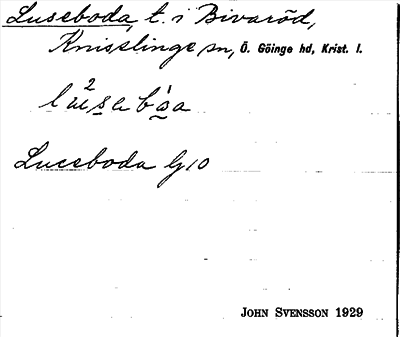 Luseboda, t. i Bivaröd,
Knisslinge sn, Ö. Göinge hd, Krist. l.
Luseboda Gs10
JOHN SVENSSON 1929